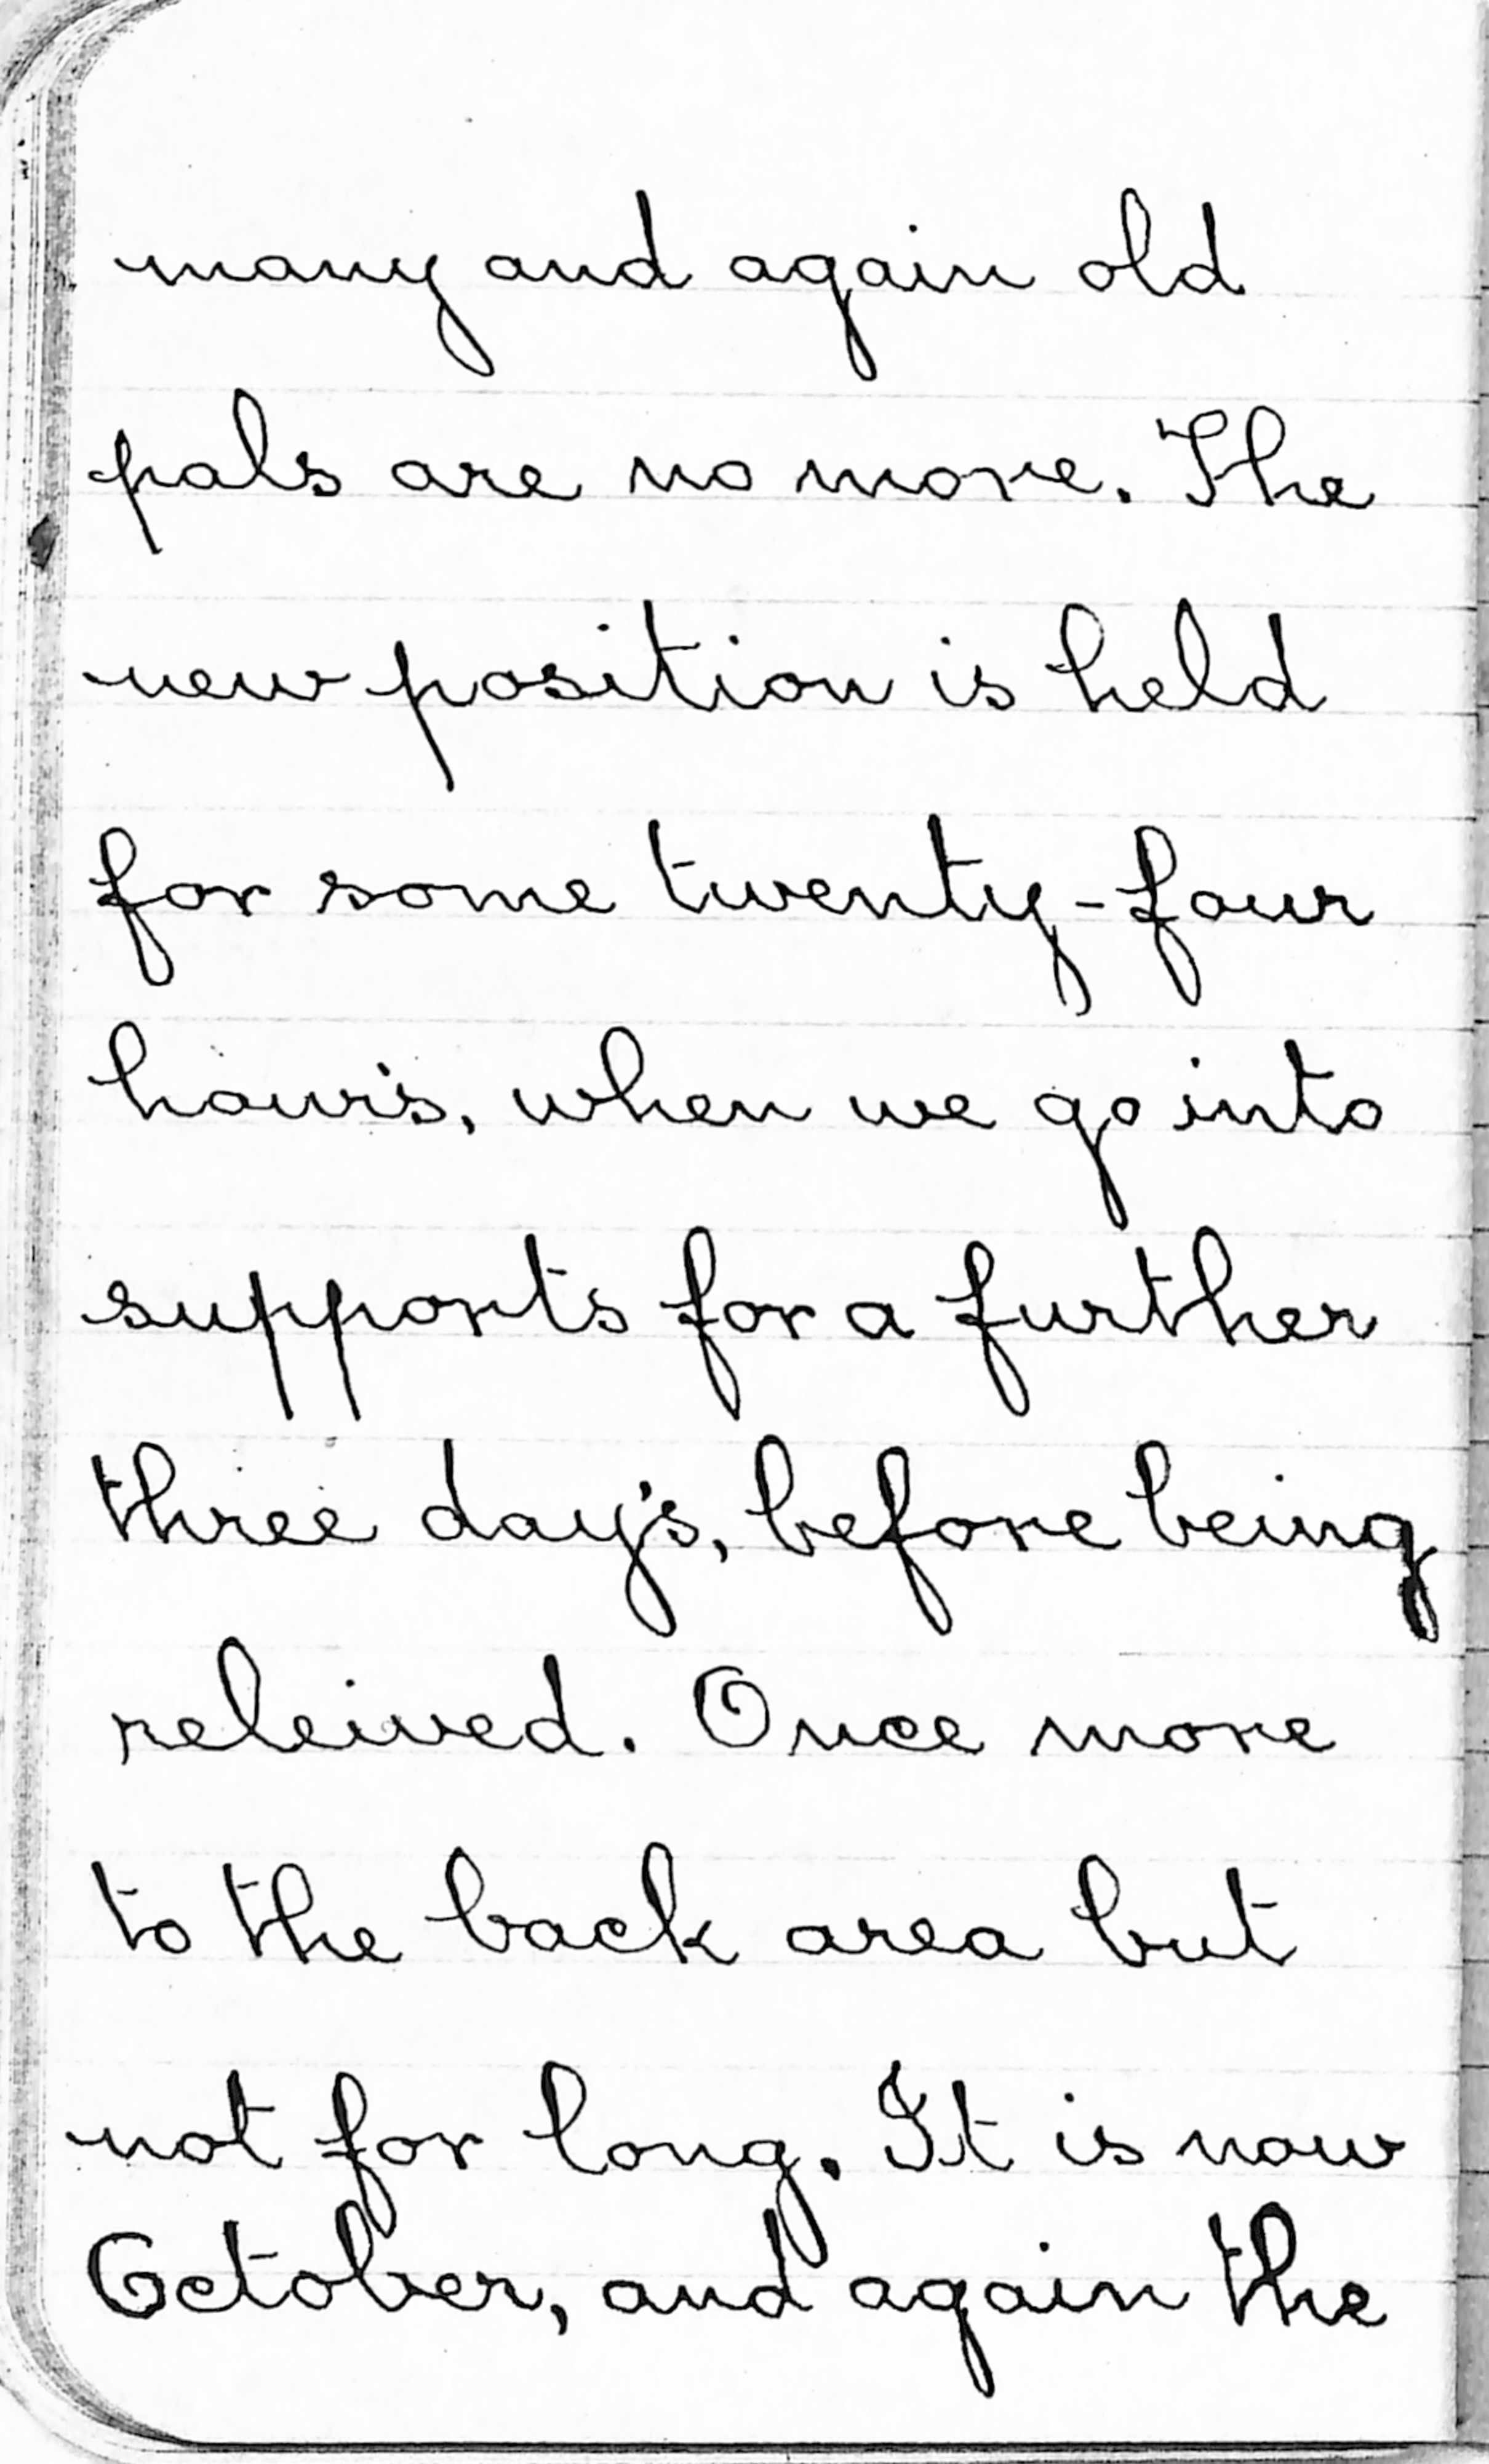 many and again old
pals are no more. The
new position is held
for some twenty-four
hour's, when we go into
supports for a further
three day's, before being
releived. Once more
to the back area but
not for long. It is now
October, and again the